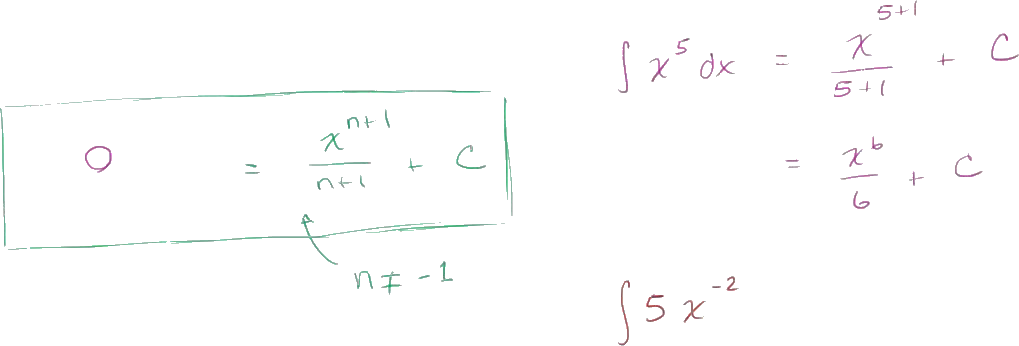 O = x^{n+1}/(n+1) + C
n ≠ -1
∫ x^5 dx = x^{5+1}/(5+1) + C
= x^6/6 + C
∫ 5 x^{-2}